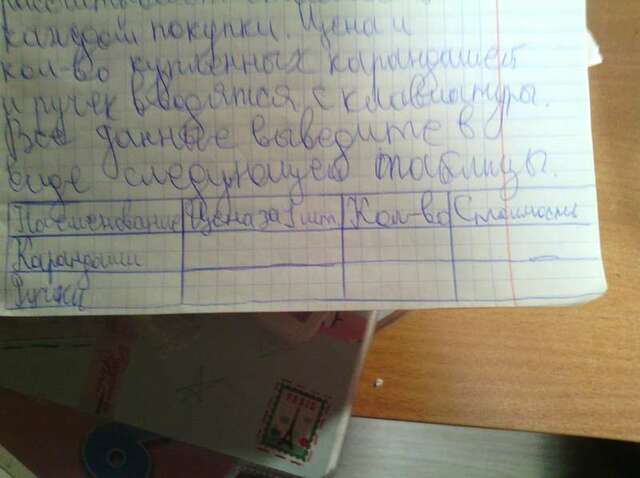 каждой покупки. Цена и
кол-во купленных карандашей
и ручек вводятся с клавиатуры.
Все данные выведите в
виде следующей таблицы.
Наименование Цена за 1 шт Кол-во Стоимость
Карандаши
Ручки